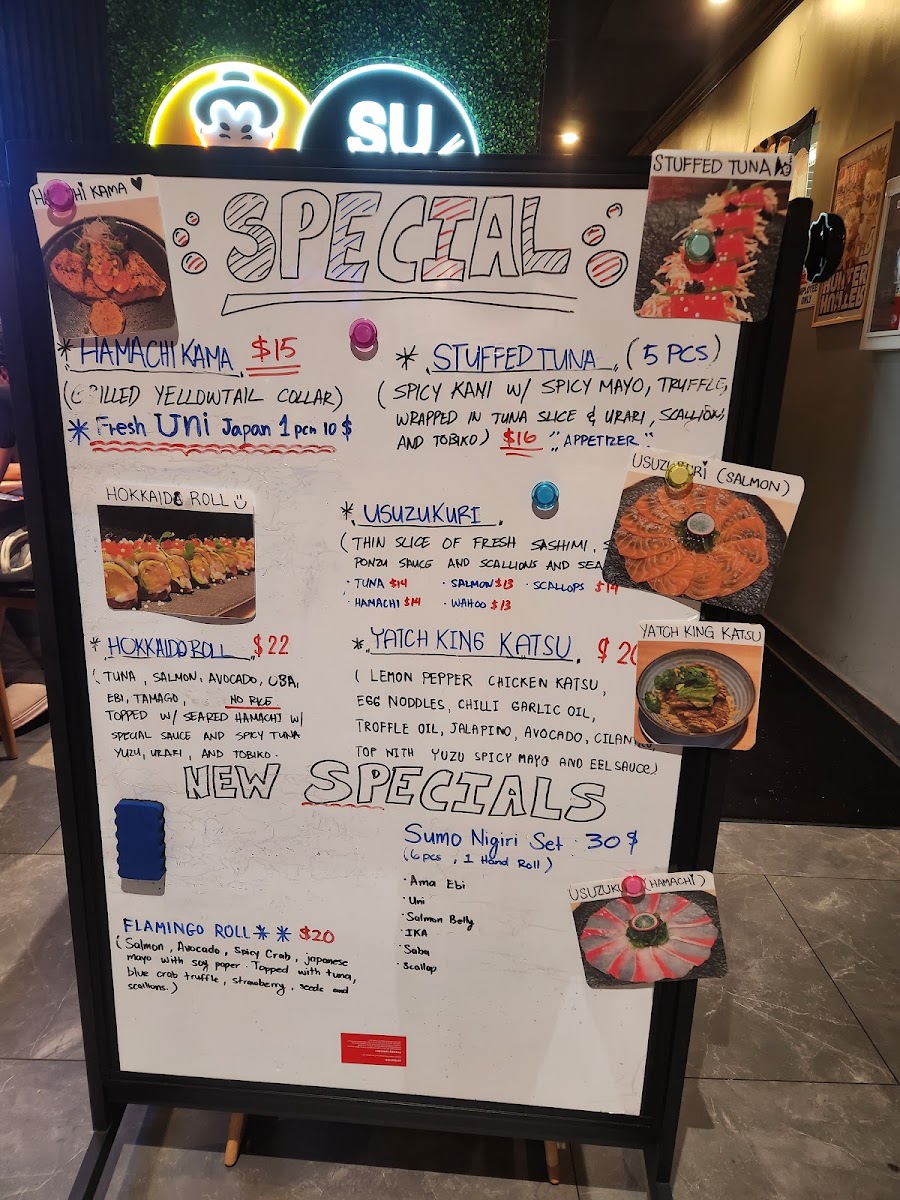 SU
STUFFED TUNA
KAMA ♥
SPECIAL
* HAMACHI KAMA $15
(GRILLED YELLOWTAIL COLLAR)
* Fresh Uni Japan 1 pcn 10 $
* STUFFED TUNA (5 PCS)
(SPICY KANI W/ SPICY MAYO, TRUFFLE,
WRAPPED IN TUNA SLICE & URARI, SCALLIONS,
AND TOBIKO) $16 "APPETIZER"
USUZUKURI (SALMON)
HOKKAIDO ROLL
* USUZUKURI
(THIN SLICE OF FRESH SASHIMI,
PONZU SAUCE AND SCALLIONS AND
· TUNA $14 · SALMON $13 · SCALLOPS $14
· HAMACHI $14 · WAHOO $13
* HOKKAIDO ROLL $22
(TUNA, SALMON, AVOCADO, OBA,
EBI, TAMAGO, NO RICE
TOPPED W/ SEARED HAMACHI W/
SPECIAL SAUCE AND SPICY TUNA
YUZU, URARI, AND TOBIKO.
* YATCH KING KATSU
(LEMON PEPPER CHICKEN KATSU,
EGG NOODLES, CHILLI GARLIC OIL,
TROFFLE OIL, JALAPINO, AVOCADO, CILANTRO,
TOP WITH YUZU SPICY MAYO AND EEL SAUCE)
YATCH KING KATSU
NEW SPECIALS
Sumo Nigiri Set · 30 $
(6 pcs, 1 Hand Roll)
· Ama Ebi
· Uni
· Salmon Belly
· IKA
· Saba
· Scallop
USUZUKU (HAMACHI)
FLAMINGO ROLL * * $20
(Salmon, Avocado, Spicy Crab, japanese
mayo with soy paper. Topped with tuna,
blue crab truffle, strawberry, seeds and
scallions.)
HUNTER
HUNTER